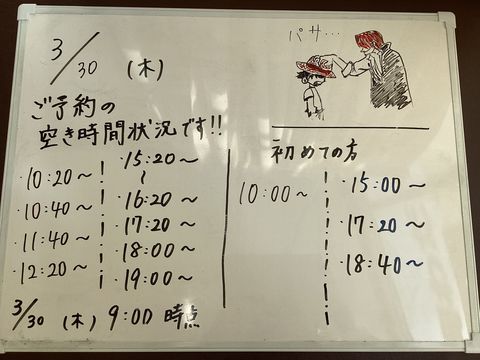 3/30 (木)
パサ…
ご予約の
空き時間状況です!!
・10:20〜
・10:40〜
・11:40〜
・12:20〜
・15:20〜
〜
・16:20〜
・17:20〜
・18:00〜
・19:00〜
3/30 (木) 9:00 時点
初めての方
10:00〜
・15:00〜
・17:20〜
・18:40〜